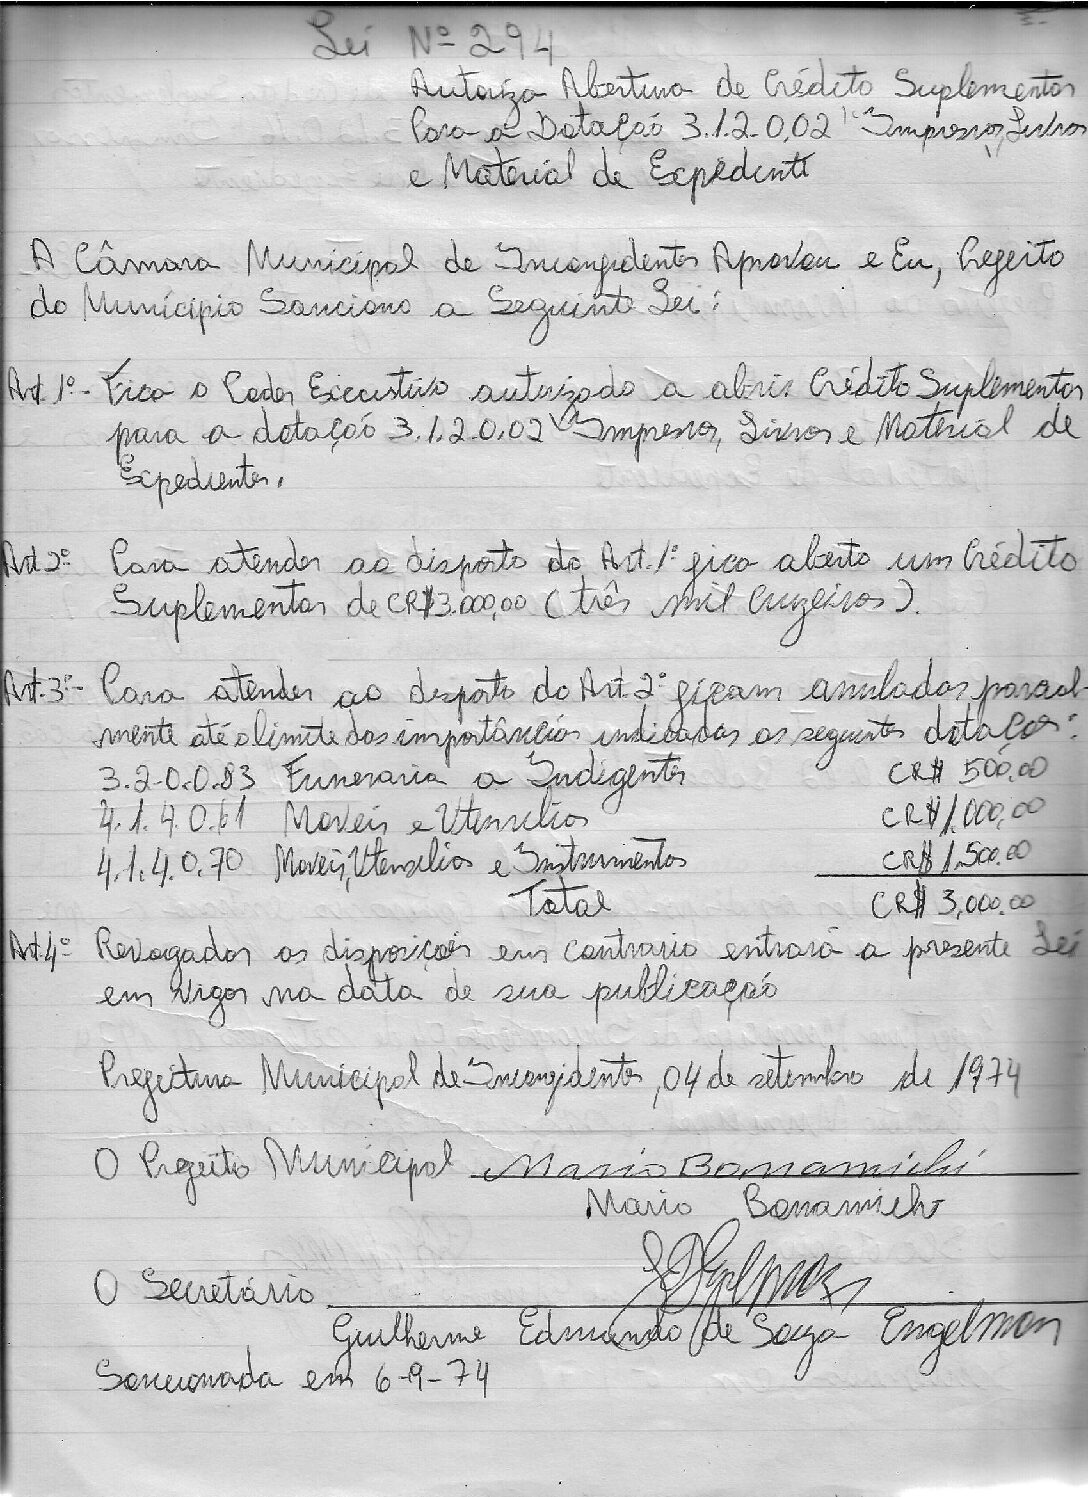 Lei Nº 294
Autoriza Abertura de Crédito Suplementar
Para a Dotação 3.1.2.0.02 "Impressos, Livros
e Material de Expediente
A Câmara Municipal de Inconfidentes Aprovou e Eu, Prefeito
do Município Sanciono a Seguinte Lei:
Art. 1º - Fica o Poder Executivo autorizado a abrir Crédito Suplementar
para a dotação 3.1.2.0.02 "Impressos, Livros e Material de
Expedientes.
Art 2º Para atender ao disposto do Art. 1º fica aberto um Crédito
Suplementar de CR$3.000,00 (três mil Cruzeiros).
Art. 3º - Para atender ao disposto do Art. 2º ficam anuladas parcial-
mente até o limite das importâncias indicadas as seguintes dotações:
3.2.0.0.83 Funeraria a Indigentes CR$ 500,00
4.1.4.0.61 Moveis e Utensilios CR$ 1.000,00
4.1.4.0.70 Moveis, Utensilios e Instrumentos CR$ 1.500,00
Total CR$ 3,000,00
Art. 4º Revogadas as disposições em contrario entrará a presente Lei
em vigor na data de sua publicação
Prefeitura Municipal de Inconfidentes, 04 de setembro de 1974
O Prefeito Municipal Mario Bonamichi
Mario Bonamichi
O Secretário
Guilherme Edmundo de Souza Engelman
Sancionada em 6-9-74